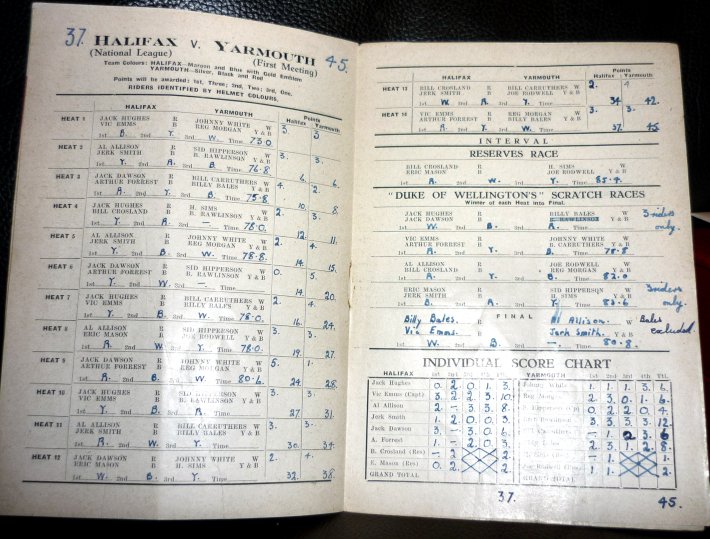 37. HALIFAX V. YARMOUTH 45.
(National League) (First Meeting)
Team Colours: HALIFAX—Maroon and Blue with Gold Emblem
YARMOUTH—Silver, Black and Red
Points will be awarded: 1st, Three; 2nd, Two; 3rd, One.
RIDERS IDENTIFIED BY HELMET COLOURS.
HALIFAX YARMOUTH Points
Halifax Yarmouth
HEAT 1 JACK HUGHES R JOHNNY WHITE W
VIC EMMS B REG MORGAN Y & B 3. 3.
1st B. 2nd Y. 3rd W. Time 73.0
HEAT 2 AL ALLISON R SID HIPPERSON W
JERK SMITH B B. RAWLINSON Y & B 3. 3.
1st Y. 2nd A. 3rd B. Time 76.8
6. 6.
HEAT 3 JACK DAWSON R BILL CARRUTHERS W
ARTHUR FORREST B BILLY BALES Y & B 4. 2.
1st A. 2nd Y. 3rd B. Time 75.8
10. 8.
HEAT 4 JACK HUGHES R H. SIMS W
BILL CROSLAND B B. RAWLINSON Y & B 2. 3.
1st Y. Time 78.0
12. 11.
HEAT 5 AL ALLISON R JOHNNY WHITE W
JERK SMITH B REG MORGAN Y & B 2. 4.
1st Y. 2nd B. 3rd W. Time 78.8
14. 15.
HEAT 6 JACK DAWSON R SID HIPPERSON W
ARTHUR FORREST B B. RAWLINSON Y & B 0. 5.
1st Y. 2nd W. 3rd —. Time
14. 20.
HEAT 7 JACK HUGHES R BILL CARRUTHERS W
VIC EMMS B BILLY BALES Y & B 2. 4.
1st Y. 2nd B. 3rd W. Time 78.0
16. 24.
HEAT 8 AL ALLISON R SID HIPPERSON W
ERIC MASON B JOE RODWELL Y & B 3. 3.
1st A. 2nd W. 3rd Y. Time 78.0
19. 27.
HEAT 9 JACK DAWSON R JOHNNY WHITE W 5. 1.
ARTHUR FORREST B REG MORGAN Y & B
1st A. 2nd B. 3rd W. Time 80.6
24. 28.
HEAT 10 JACK HUGHES R SID HIPPERSON W
VIC EMMS B B. RAWLINSON Y & B 3. 3.
1st Y. 2nd B. 3rd A. Time
27. 31.
HEAT 11 AL ALLISON R BILL CARRUTHERS W
JERK SMITH B BILLY BALES Y & B 3. 3.
1st A. 2nd W. 3rd Y. Time
30. 34.
HEAT 12 JACK DAWSON R JOHNNY WHITE W 2. 4.
ERIC MASON B H. SIMS Y & B
1st W. 2nd B. 3rd Y. Time
32. 38.
HALIFAX YARMOUTH Points
Halifax Yarmouth
HEAT 13 BILL CROSLAND R BILL CARRUTHERS W 2. 4
JERK SMITH B JOE RODWELL Y & B
1st W. 2nd A. 3rd Y. Time 34 42.
VIC EMMS R REG MORGAN W 3. 3.
ARTHUR FORREST B BILLY BALES Y & B
1st Y. 2nd B. 3rd A. Time 37. 45.
INTERVAL
RESERVES RACE
BILL CROSLAND R H. SIMS W
ERIC MASON B JOE RODWELL Y & B
1st A. 2nd W. 3rd Y. Time 85.4.
"DUKE OF WELLINGTON'S" SCRATCH RACES
Winner of each Heat into Final.
JACK HUGHES R BILLY BALES W 3 riders
JACK DAWSON B B. RAWLINSON Y & B only.
1st W. 2nd B. 3rd A. Time
VIC EMMS R JOHNNY WHITE W
ARTHUR FORREST B B. CARRUTHERS Y & B
1st A. 2nd Y. 3rd B. Time 78.8
AL ALLISON R JOE RODWELL W
BILL CROSLAND B REG MORGAN Y & B
1st A. 2nd Y. 3rd B. Time 82.0
ERIC MASON R SID HIPPERSON W 3 riders
JERK SMITH B H. SIMS Y & B only.
1st B. 2nd A. 3rd Y. Time 83.6
Billy Bales. FINAL Al Allison. Bales
Vic Emms. Jerk Smith. excluded.
1st W. 2nd B. 3rd —. Time 80.8.
INDIVIDUAL SCORE CHART
HALIFAX 1st 2nd 3rd 4th Ttl. YARMOUTH 1st 2nd 3rd 4th Ttl.
Jack Hughes 0. 2. 0. 1. 3. Johnny White 1. 1. 1. 3. 6.
Vic Emms (Capt) 3. 2. 2. 3. 10. Reg Morgan 2. 3. 0. 1. 6.
Al Allison 2. — 3. 3. 8. S. Hipperson 0. 2. 2. 0. 4.
Jerk Smith 1. 2. 0. 0. 3. 3. 3. 3. 3. 12.
Jack Dawson 3. — 3. 0. 6.
A. Forrest 1. — 2. 0. 3. 2. 3. 1. 2. 8.
B. Crosland (Res) — 2. 2.
E. Mason (Res) 0. 2. 2. Joe Rodwell (Res) 1. 1. 2.
GRAND TOTAL GRAND TOTAL
37. 45.